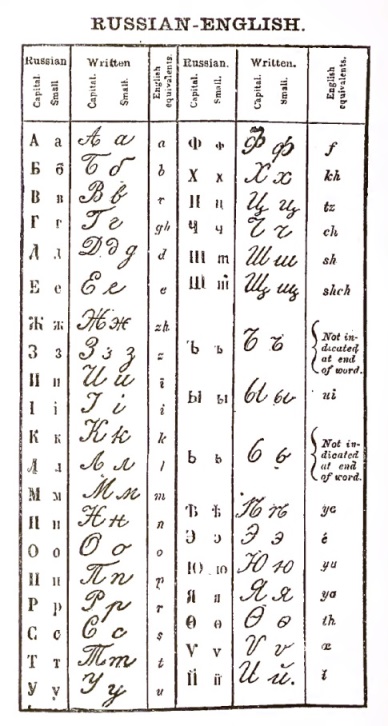 RUSSIAN-ENGLISH.
Russian Written Russian. Written.
Capital. Small Capital. Small. English equivalents. Capital. Small. Capital. Small. English equivalents.
А а А а a Ф ф Ф ф f
Б б Б б b Х х Х х kh
В в В в v Ц ц Ц ц tz
Г г Г г gh Ч ч Ч ч ch
Д д Д д д d Ш ш Ш ш sh
Е е Е е e Щ щ Щ щ shch
Ж ж Ж ж zh
З з З з з z Ъ ъ Ъ ъ Not indicated at end of word.
И и И и i
І і І і i Ы ы Ы ы ui
К к К к k
Л л Л л l Ь ь Ь ь Not indicated at end of word.
М м М м m
Н н Н н n Ѣ ѣ Ѣ ѣ ye
О о О о o Э э Э э é
П п П п p Ю ю Ю ю yu
Р р Р р r Я я Я я ya
С с С с s Ѳ ѳ Ѳ ѳ th
Т т Т т t Ѵ ѵ Ѵ ѵ œ
У у У у u Й й И й. i